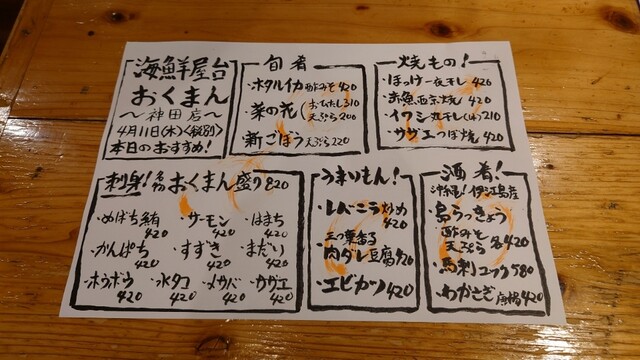 海鮮屋台
おくまん
〜神田店〜
4月11日(木)
本日のおすすめ!
旬肴
・ホタルイカ酢みそ420
・菜の花(おひたし310
天ぷら200
・新ごぼう天ぷら220
焼もの!
・ほっけ一夜干し420
・赤魚西京焼420
・イワシ丸干し(1本)210
・サザエつぼ焼420
刺身!名物おくまん盛り820
・めばち鮪420
・サーモン420
・はまち420
・かんぱち420
・すずき420
・まだい420
・ホウボウ420
・水タコ420
・〆サバ420
・サザエ420
うまいもん!
・レバニラ炒め420
・三つ葉香る
肉ダレ豆腐420
・エビカツ420
酒肴!
沖縄!伊江島産
・島らっきょう
酢みそ
天ぷら 各420
・馬刺ユッケ580
・わかさぎ唐揚420